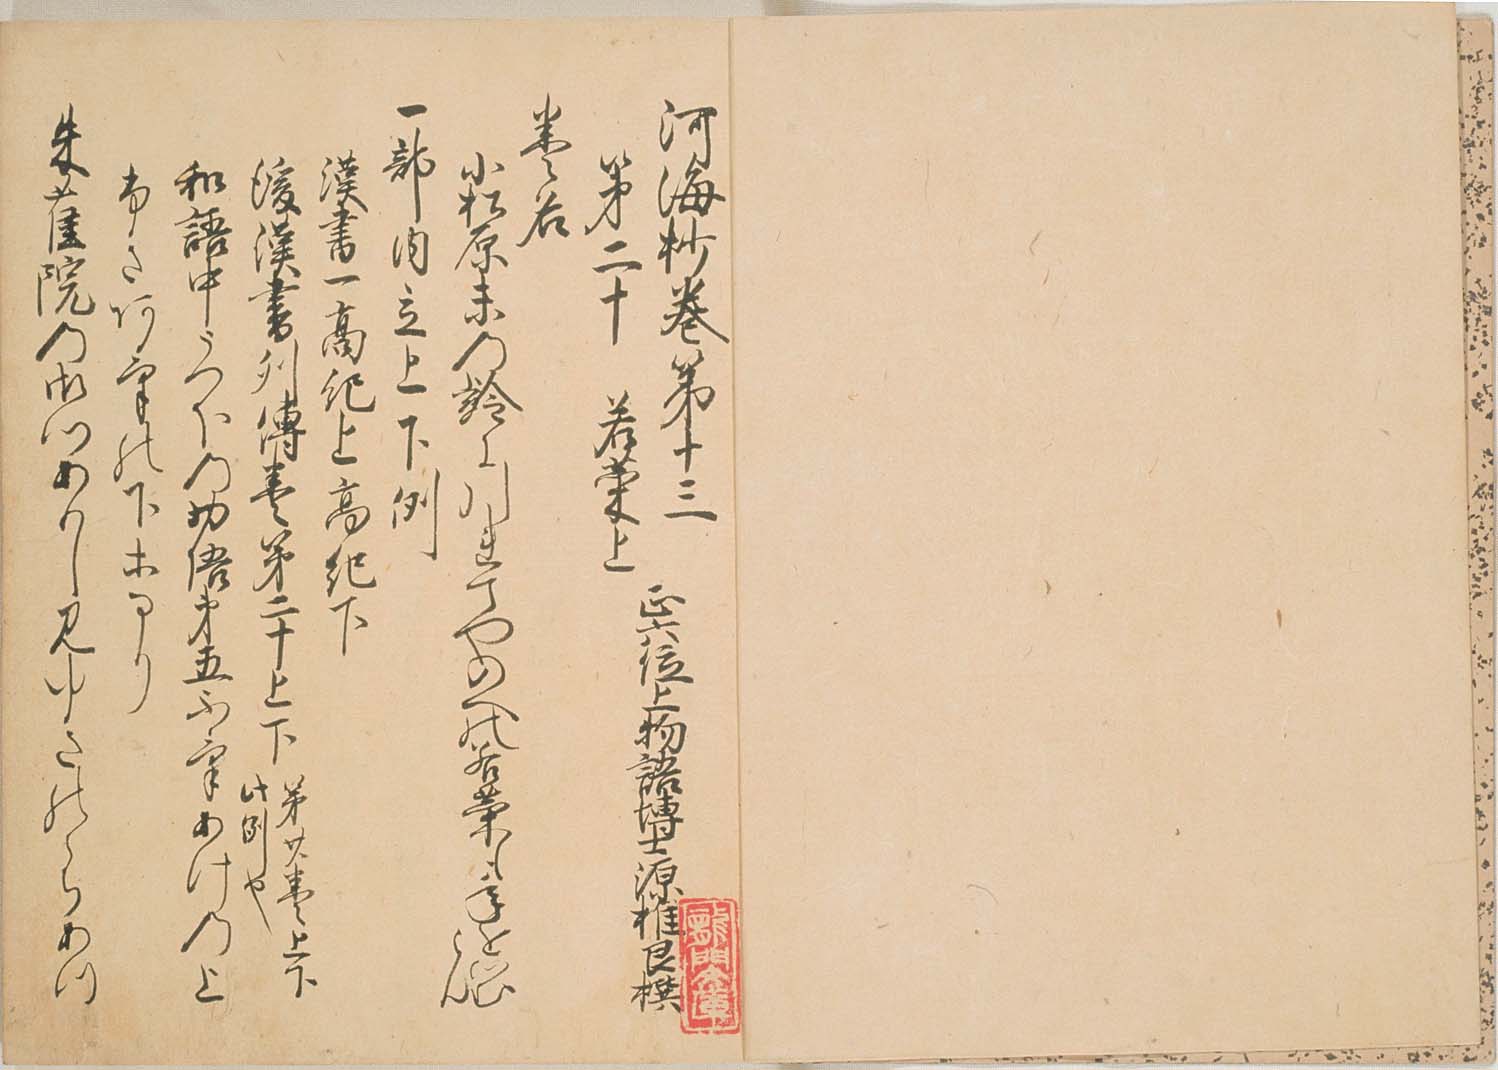 河海抄巻第十三
正六位上物語博士源惟良撰
第二十　若菜上
巻名
小松原末の齢にひかれてやのへの若菜も年をつむへき
一部内立上下例
漢書一高紀上高紀下
後漢書列傳巻第二十上下
第廿巻上下
此例也
和語中うつほの物語第五
下
朱雀院の御門ありし
龍門文庫